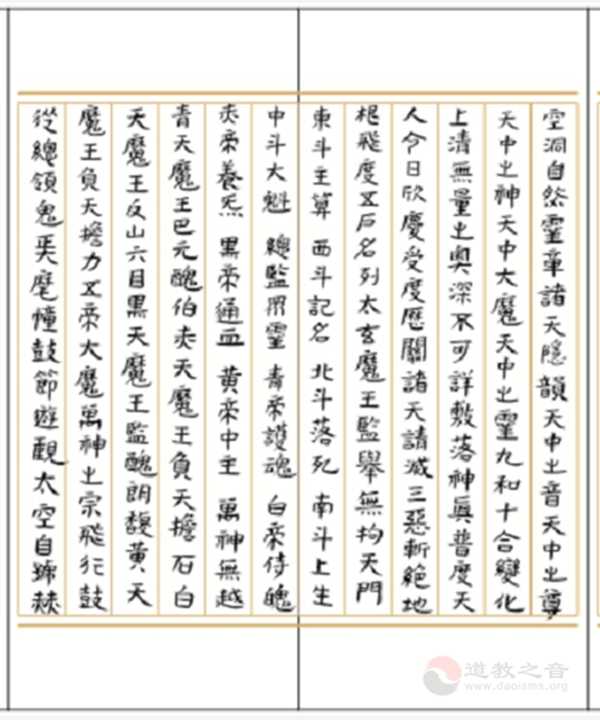 空洞自然靈章諸天隱韻天中之音天中之尊
天中之神天中大魔天中之靈九和十合變化
上清無量之奧深不可詳敷落神眞普度天
人今日欣慶受度歷關諸天請滅三惡斬絕地
根飛度五戶名列太玄魔王監舉無拘天門
東斗主算 西斗記名 北斗落死 南斗上生
中斗大魁 總監眾靈 青帝護魂 白帝侍魄
赤帝養炁 黑帝通血 黃帝中主 萬神無越
青天魔王巴元醜伯赤天魔王負天擔石白
天魔王反山六目黑天魔王監醜朗馥黃天
魔王負天擔力五帝大魔萬神之宗飛行鼓
從總領鬼兵麾幢鼓節遊觀太空自號赫
道教之音
www.daoisms.org